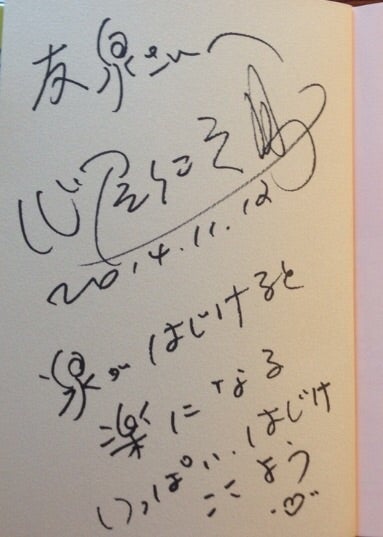 友泉さんへ
心屋仁之助
2014.11.12
泉がはじけると
楽になる
いっぱい、はじけ
よう